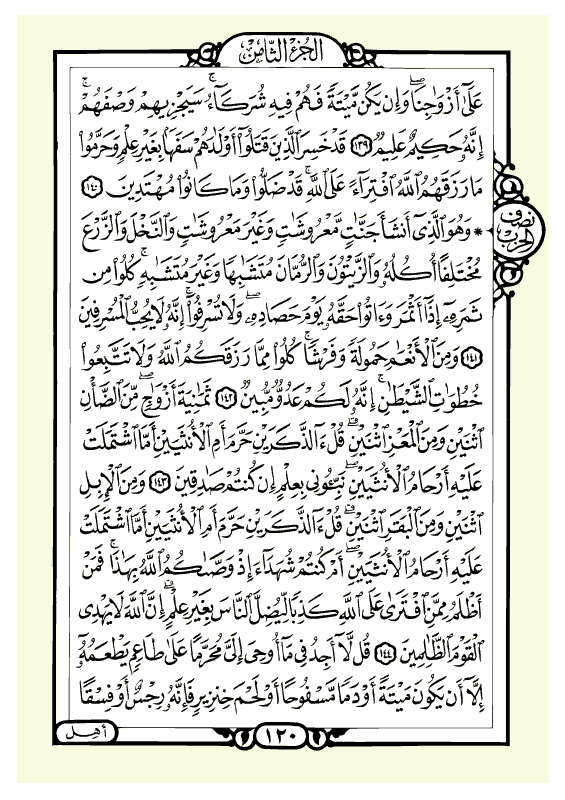 الجزء الثامن
عَلَىٰٓ أَزْوَٰجِنَا ۖ وَإِن يَكُن مَّيْتَةً فَهُمْ فِيهِ شُرَكَآءُ ۚ سَيَجْزِيهِمْ وَصْفَهُمْ ۚ
إِنَّهُۥ حَكِيمٌ عَلِيمٌ ١٣٩ قَدْ خَسِرَ ٱلَّذِينَ قَتَلُوٓا۟ أَوْلَٰدَهُمْ سَفَهًۢا بِغَيْرِ عِلْمٍ وَحَرَّمُوا۟
مَا رَزَقَهُمُ ٱللَّهُ ٱفْتِرَآءً عَلَى ٱللَّهِ ۚ قَدْ ضَلُّوا۟ وَمَا كَانُوا۟ مُهْتَدِينَ ١٤٠
* وَهُوَ ٱلَّذِىٓ أَنشَأَ جَنَّٰتٍ مَّعْرُوشَٰتٍ وَغَيْرَ مَعْرُوشَٰتٍ وَٱلنَّخْلَ وَٱلزَّرْعَ
نصف الحزب
مُخْتَلِفًا أُكُلُهُۥ وَٱلزَّيْتُونَ وَٱلرُّمَّانَ مُتَشَٰبِهًا وَغَيْرَ مُتَشَٰبِهٍ ۚ كُلُوا۟ مِن
ثَمَرِهِۦٓ إِذَآ أَثْمَرَ وَءَاتُوا۟ حَقَّهُۥ يَوْمَ حَصَادِهِۦ ۖ وَلَا تُسْرِفُوٓا۟ ۚ إِنَّهُۥ لَا يُحِبُّ ٱلْمُسْرِفِينَ
١٤١ وَمِنَ ٱلْأَنْعَٰمِ حَمُولَةً وَفَرْشًا ۚ كُلُوا۟ مِمَّا رَزَقَكُمُ ٱللَّهُ وَلَا تَتَّبِعُوا۟
خُطُوَٰتِ ٱلشَّيْطَٰنِ ۚ إِنَّهُۥ لَكُمْ عَدُوٌّ مُّبِينٌ ١٤٢ ثَمَٰنِيَةَ أَزْوَٰجٍ ۖ مِّنَ ٱلضَّأْنِ
ٱثْنَيْنِ وَمِنَ ٱلْمَعْزِ ٱثْنَيْنِ ۗ قُلْ ءَآلذَّكَرَيْنِ حَرَّمَ أَمِ ٱلْأُنثَيَيْنِ أَمَّا ٱشْتَمَلَتْ
عَلَيْهِ أَرْحَامُ ٱلْأُنثَيَيْنِ ۖ نَبِّـُٔونِى بِعِلْمٍ إِن كُنتُمْ صَٰدِقِينَ ١٤٣ وَمِنَ ٱلْإِبِلِ
ٱثْنَيْنِ وَمِنَ ٱلْبَقَرِ ٱثْنَيْنِ ۗ قُلْ ءَآلذَّكَرَيْنِ حَرَّمَ أَمِ ٱلْأُنثَيَيْنِ أَمَّا ٱشْتَمَلَتْ
عَلَيْهِ أَرْحَامُ ٱلْأُنثَيَيْنِ ۖ أَمْ كُنتُمْ شُهَدَآءَ إِذْ وَصَّىٰكُمُ ٱللَّهُ بِهَٰذَا ۚ فَمَنْ
أَظْلَمُ مِمَّنِ ٱفْتَرَىٰ عَلَى ٱللَّهِ كَذِبًا لِّيُضِلَّ ٱلنَّاسَ بِغَيْرِ عِلْمٍ ۗ إِنَّ ٱللَّهَ لَا يَهْدِى
ٱلْقَوْمَ ٱلظَّٰلِمِينَ ١٤٤ قُل لَّآ أَجِدُ فِى مَآ أُوحِىَ إِلَىَّ مُحَرَّمًا عَلَىٰ طَاعِمٍ يَطْعَمُهُۥٓ
إِلَّآ أَن يَكُونَ مَيْتَةً أَوْ دَمًا مَّسْفُوحًا أَوْ لَحْمَ خِنزِيرٍ فَإِنَّهُۥ رِجْسٌ أَوْ فِسْقًا
١٢٠
أهل